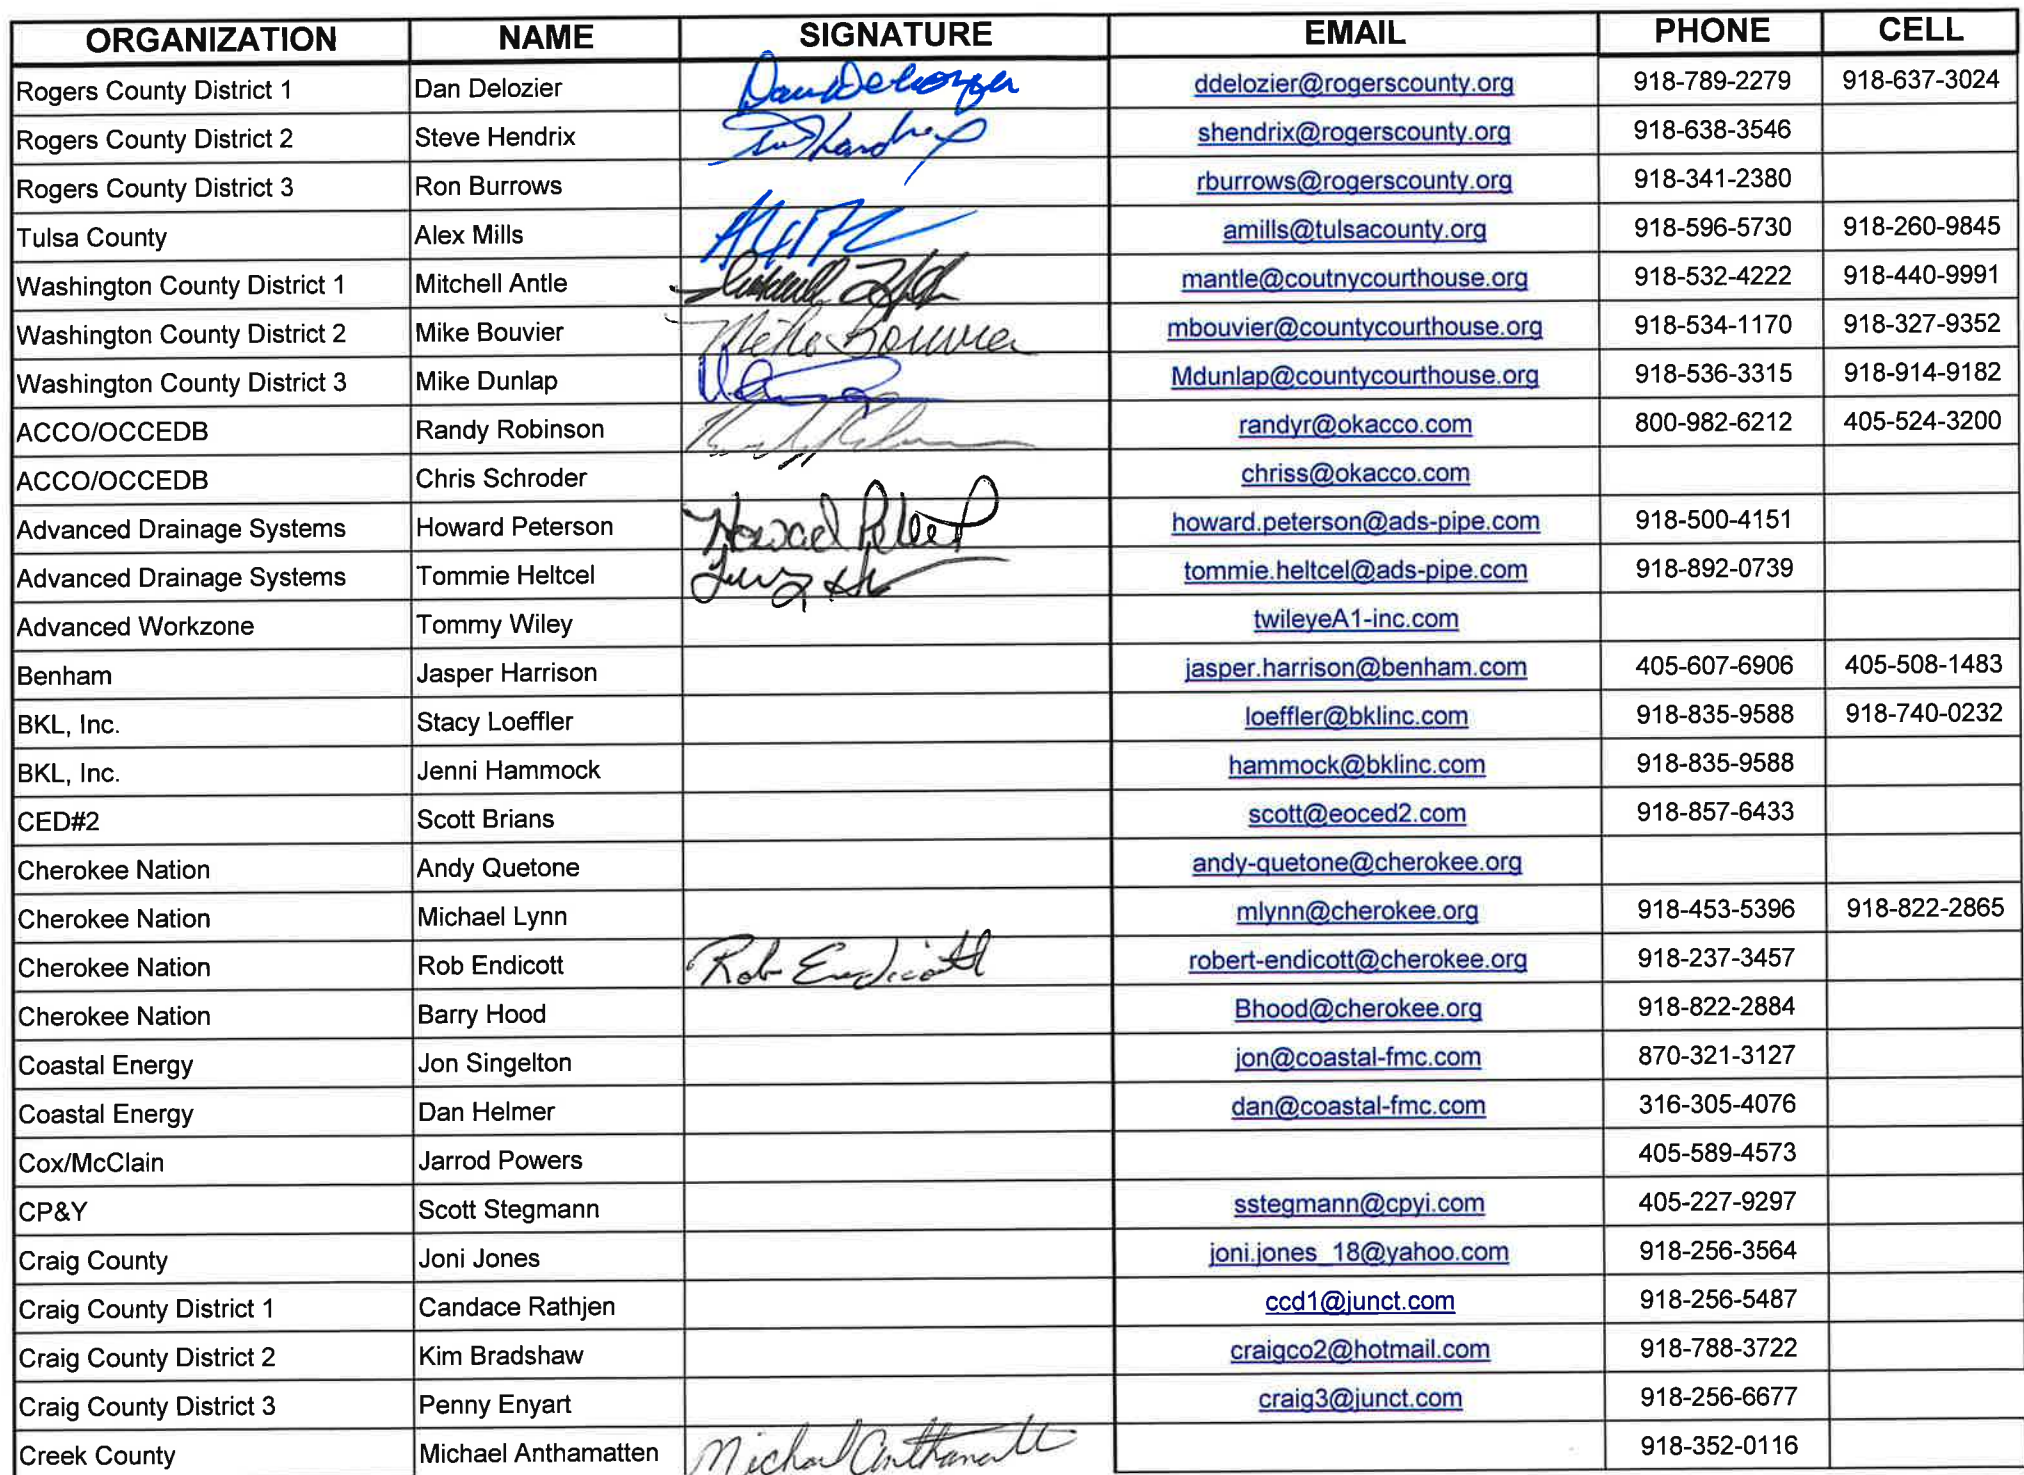 ORGANIZATION NAME SIGNATURE EMAIL PHONE CELL
Rogers County District 1 Dan Delozier Dan Delozier ddelozier@rogerscounty.org 918-789-2279 918-637-3024
Rogers County District 2 Steve Hendrix shendrix@rogerscounty.org 918-638-3546
Rogers County District 3 Ron Burrows rburrows@rogerscounty.org 918-341-2380
Tulsa County Alex Mills amills@tulsacounty.org 918-596-5730 918-260-9845
Washington County District 1 Mitchell Antle mantle@coutnycourthouse.org 918-532-4222 918-440-9991
Washington County District 2 Mike Bouvier Mike Bouvier mbouvier@countycourthouse.org 918-534-1170 918-327-9352
Washington County District 3 Mike Dunlap Mdunlap@countycourthouse.org 918-536-3315 918-914-9182
ACCO/OCCEDB Randy Robinson randyr@okacco.com 800-982-6212 405-524-3200
ACCO/OCCEDB Chris Schroder chriss@okacco.com
Advanced Drainage Systems Howard Peterson Howard howard.peterson@ads-pipe.com 918-500-4151
Advanced Drainage Systems Tommie Heltcel tommie.heltcel@ads-pipe.com 918-892-0739
Advanced Workzone Tommy Wiley twileyeA1-inc.com
Benham Jasper Harrison jasper.harrison@benham.com 405-607-6906 405-508-1483
BKL, Inc. Stacy Loeffler loeffler@bklinc.com 918-835-9588 918-740-0232
BKL, Inc. Jenni Hammock hammock@bklinc.com 918-835-9588
CED#2 Scott Brians scott@eoced2.com 918-857-6433
Cherokee Nation Andy Quetone andy-quetone@cherokee.org
Cherokee Nation Michael Lynn mlynn@cherokee.org 918-453-5396 918-822-2865
Cherokee Nation Rob Endicott Rob Endicott robert-endicott@cherokee.org 918-237-3457
Cherokee Nation Barry Hood Bhood@cherokee.org 918-822-2884
Coastal Energy Jon Singelton jon@coastal-fmc.com 870-321-3127
Coastal Energy Dan Helmer dan@coastal-fmc.com 316-305-4076
Cox/McClain Jarrod Powers 405-589-4573
CP&Y Scott Stegmann sstegmann@cpyi.com 405-227-9297
Craig County Joni Jones joni.jones_18@yahoo.com 918-256-3564
Craig County District 1 Candace Rathjen ccd1@junct.com 918-256-5487
Craig County District 2 Kim Bradshaw craigco2@hotmail.com 918-788-3722
Craig County District 3 Penny Enyart craig3@junct.com 918-256-6677
Creek County Michael Anthamatten Michael Anthamatten 918-352-0116